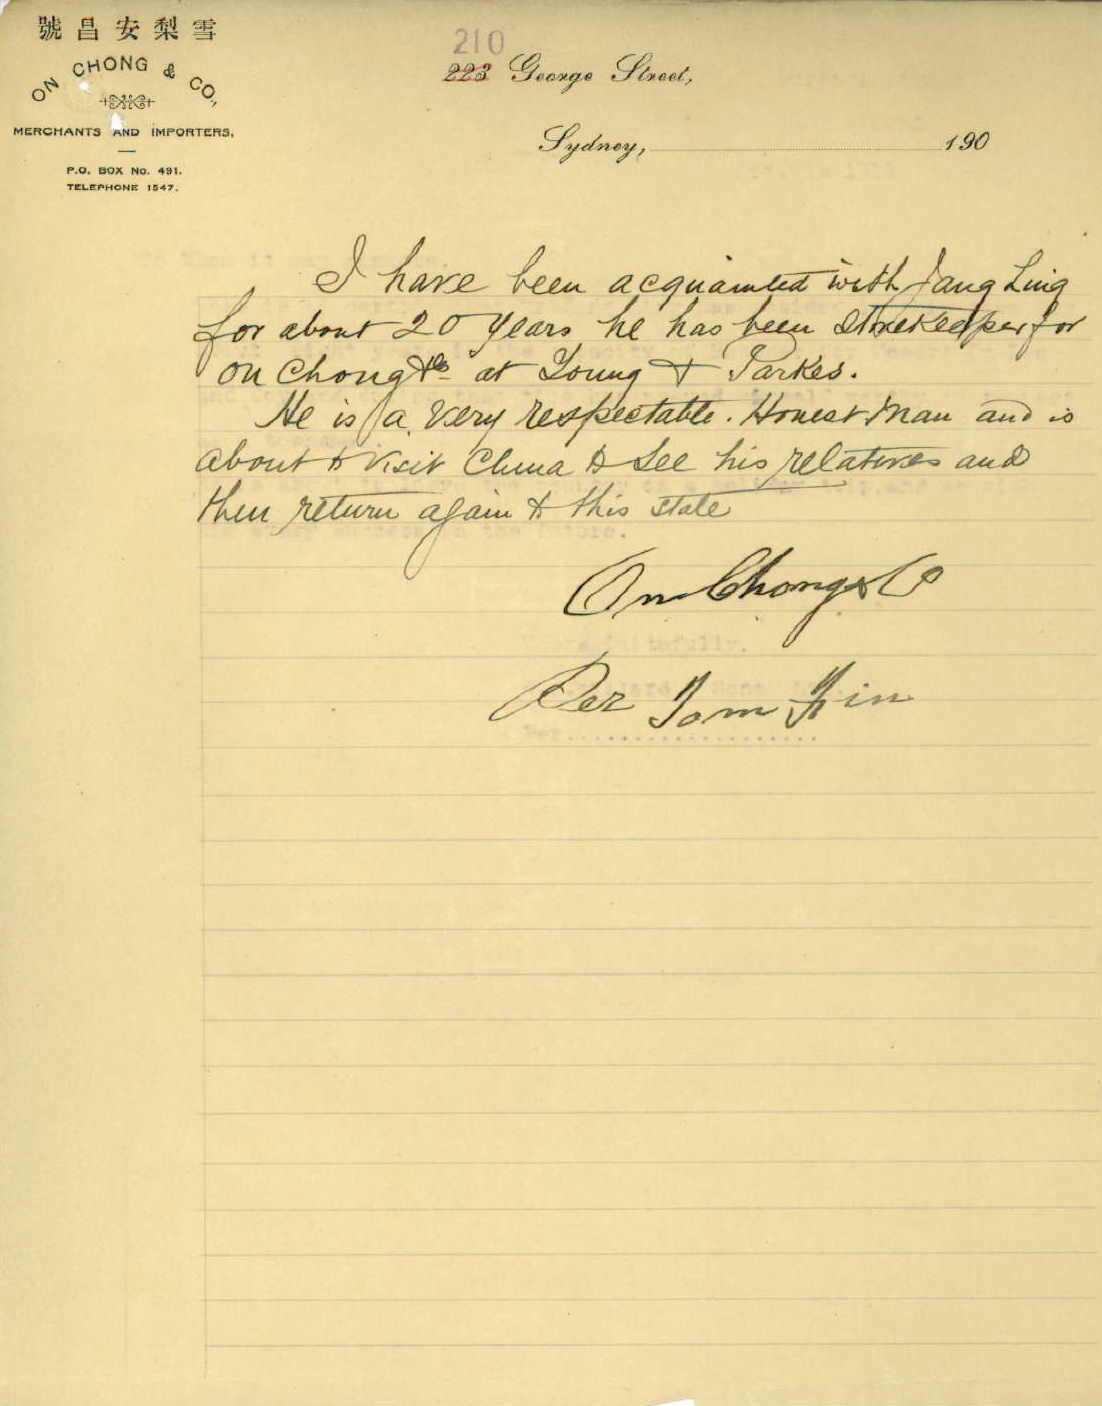 號昌安梨雪
ON CHONG & CO.,
MERCHANTS AND IMPORTERS,
P.O. BOX No. 491.
TELEPHONE 1547.
210
223 George Street,
Sydney, 190
I have been acquainted with Jang Ling
for about 20 years he has been Storekeeper for
on Chong & Co at Young & Parkes.
He is a very respectable. Honest Man and is
about to visit China to See his relatives and
then return again to this state
On Chong & Co
Per Tom Fin